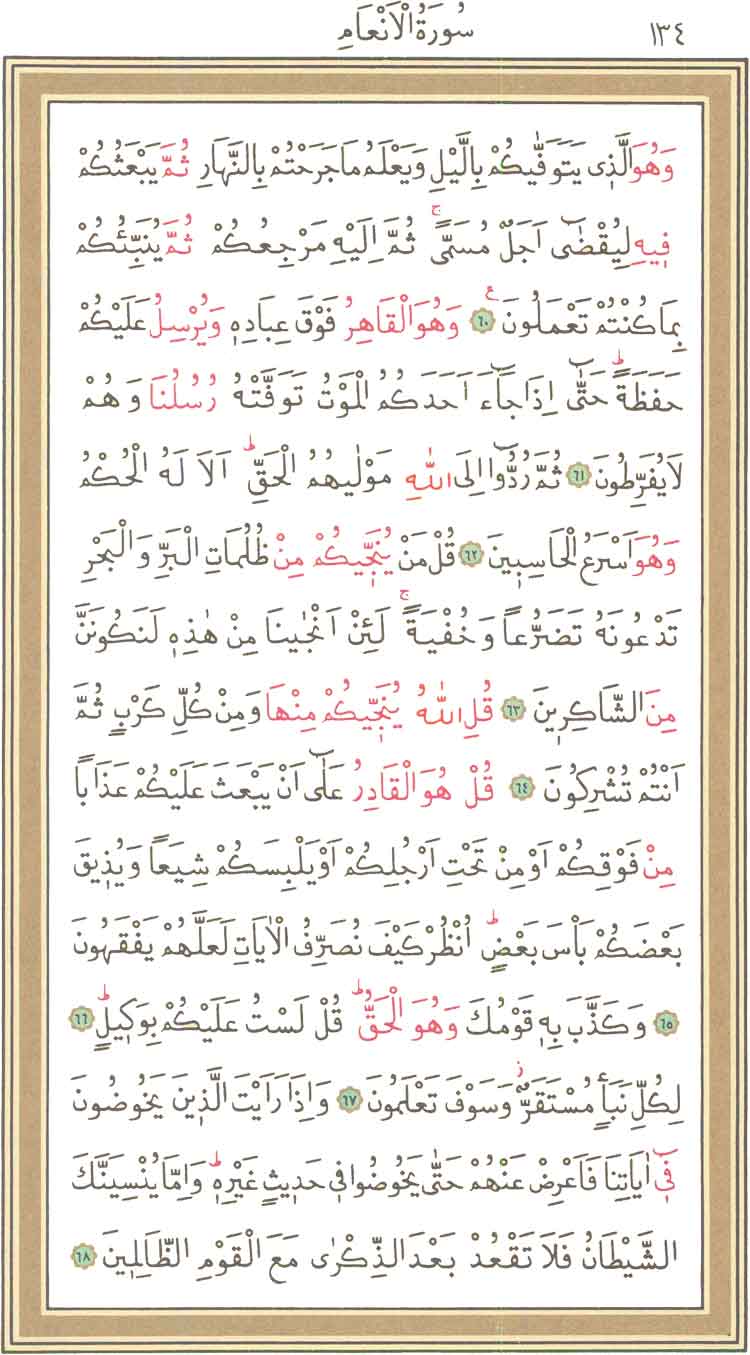 سُورَةُ الْاَنْعَامِ ١٣٤
وَهُوَ الَّذ۪ي يَتَوَفّٰيكُمْ بِالَّيْلِ وَيَعْلَمُ مَا جَرَحْتُمْ بِالنَّهَارِ ثُمَّ يَبْعَثُكُمْ
ف۪يهِ لِيُقْضٰٓى اَجَلٌ مُسَمًّىۚ ثُمَّ اِلَيْهِ مَرْجِعُكُمْ ثُمَّ يُنَبِّئُكُمْ
بِمَا كُنْتُمْ تَعْمَلُونَ ﴿٦٠﴾ ع وَهُوَ الْقَاهِرُ فَوْقَ عِبَادِه۪ وَيُرْسِلُ عَلَيْكُمْ
حَفَظَةًۜ حَتّٰٓى اِذَا جَٓاءَ اَحَدَكُمُ الْمَوْتُ تَوَفَّتْهُ رُسُلُنَا وَهُمْ
لَا يُفَرِّطُونَ ﴿٦١﴾ ثُمَّ رُدُّٓوا اِلَى اللّٰهِ مَوْلٰيهُمُ الْحَقِّۜ اَلَا لَهُ الْحُكْمُ
وَهُوَ اَسْرَعُ الْحَاسِب۪ينَ ﴿٦٢﴾ قُلْ مَنْ يُنَجّ۪يكُمْ مِنْ ظُلُمَاتِ الْبَرِّ وَالْبَحْرِ
تَدْعُونَهُ تَضَرُّعاً وَخُفْيَةًۚ لَئِنْ اَنْجٰينَا مِنْ هٰذِه۪ لَنَكُونَنَّ
مِنَ الشَّاكِر۪ينَ ﴿٦٣﴾ قُلِ اللّٰهُ يُنَجّ۪يكُمْ مِنْهَا وَمِنْ كُلِّ كَرْبٍ ثُمَّ
اَنْتُمْ تُشْرِكُونَ ﴿٦٤﴾ قُلْ هُوَ الْقَادِرُ عَلٰٓى اَنْ يَبْعَثَ عَلَيْكُمْ عَذَاباً
مِنْ فَوْقِكُمْ اَوْ مِنْ تَحْتِ اَرْجُلِكُمْ اَوْ يَلْبِسَكُمْ شِيَعاً وَيُذ۪يقَ
بَعْضَكُمْ بَأْسَ بَعْضٍۜ اُنْظُرْ كَيْفَ نُصَرِّفُ الْاٰيَاتِ لَعَلَّهُمْ يَفْقَهُونَ
﴿٦٥﴾ وَكَذَّبَ بِه۪ قَوْمُكَ وَهُوَ الْحَقُّۜ قُلْ لَسْتُ عَلَيْكُمْ بِوَك۪يلٍۜ ﴿٦٦﴾
لِكُلِّ نَبَأٍ مُسْتَقَرٌّۘ وَسَوْفَ تَعْلَمُونَ ﴿٦٧﴾ وَاِذَا رَاَيْتَ الَّذ۪ينَ يَخُوضُونَ
ف۪ٓي اٰيَاتِنَا فَاَعْرِضْ عَنْهُمْ حَتّٰى يَخُوضُوا ف۪ي حَد۪يثٍ غَيْرِه۪ۜ وَاِمَّا يُنْسِيَنَّكَ
الشَّيْطَانُ فَلَا تَقْعُدْ بَعْدَ الذِّكْرٰى مَعَ الْقَوْمِ الظَّالِم۪ينَ ﴿٦٨﴾